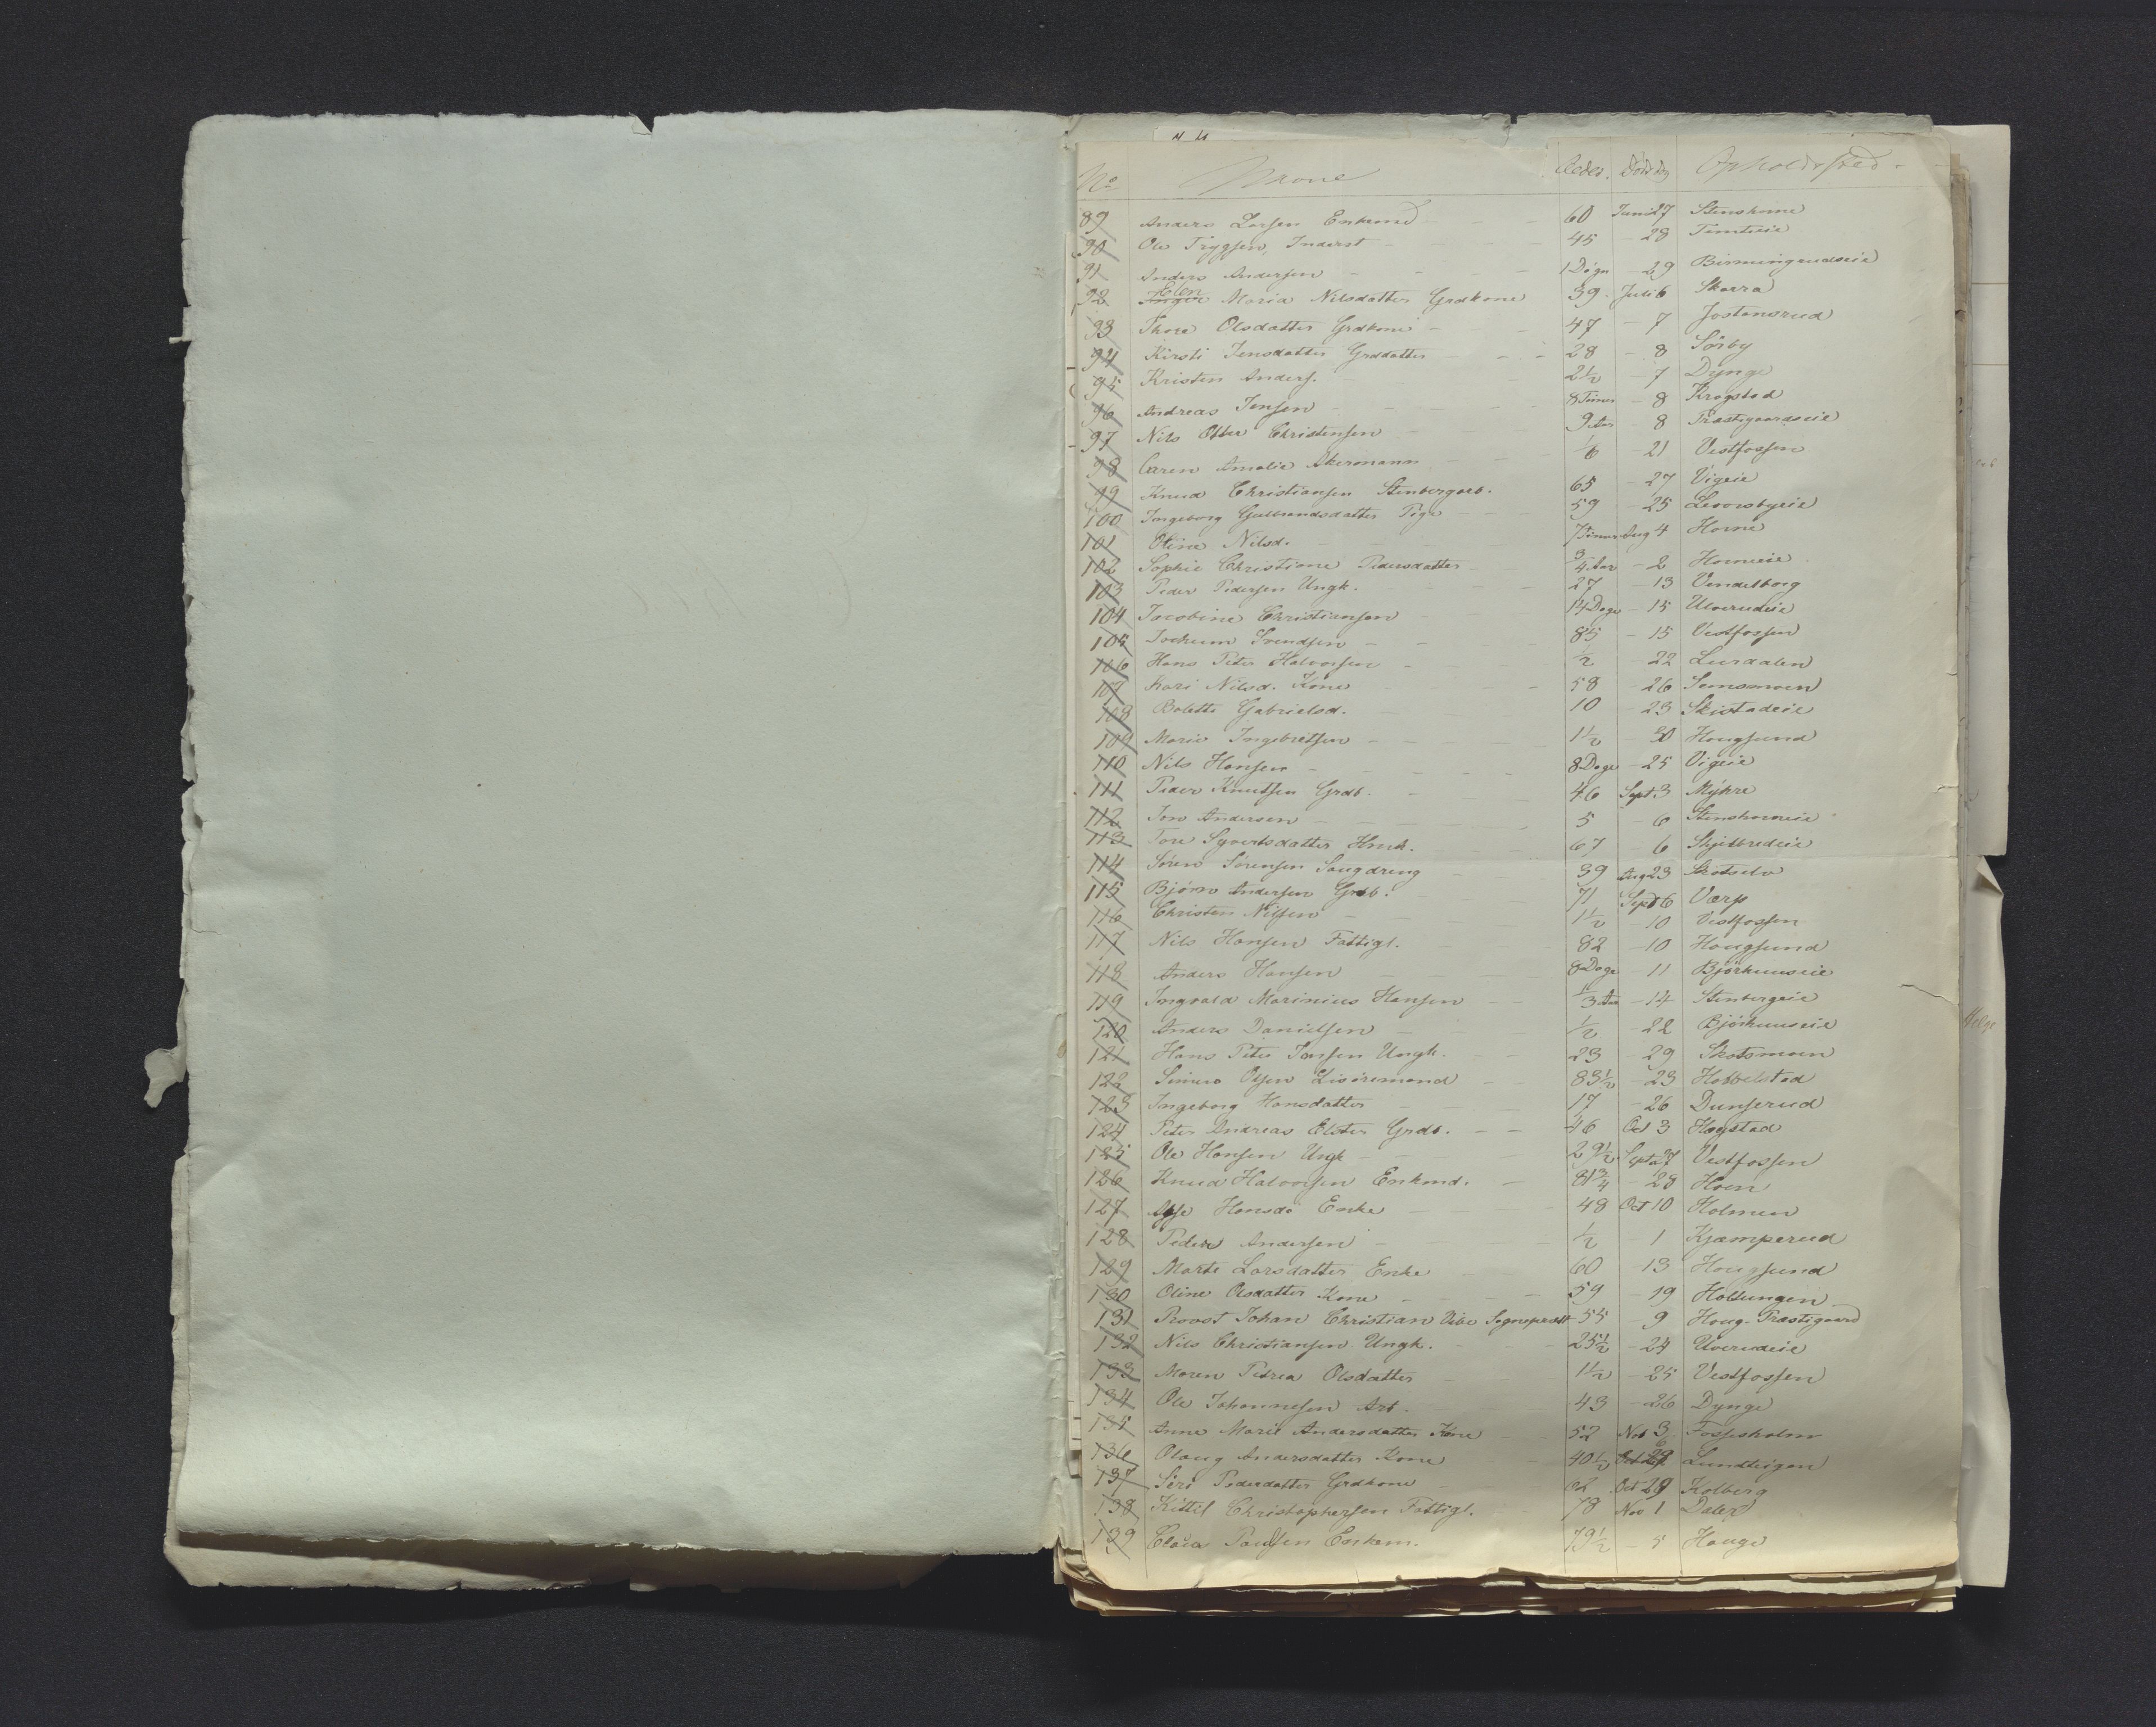 No Navne Alder. Dødsdag Opholdssted
89 Anders Larsen Enkemd 60 Juni 27 Stenshorne
90 Ole Trygsen, Inderst 45 - 28
91 Anders Andersen 1 Døgn - 29
92 Elen Maria Nilsdatter Grdkone 39 Juli 6 Skarra
93 Thore Olsdatter Grdkone 47 - 7 Jostensrud
94 Kirsti Jensdatter Grddatter 28 - 8 Sørby
95 Kristen Anders. 2½ - 7 Dynge
96 Andreas Jensen 8 Timer - 8 Krogstad
97 Nils Otter Christensen 9 - 8 Præstegaardseie
98 Caren Amalie Akermann 1/6 - 21 Vestfossen
99 Knud Christiansen Stenbergarb. 65 - 27 Vigeie
100 Ingeborg Gulbrandsdatter Pige 59 - 25
101 Oline Nilsd. 7 Timer Aug 4 Horne
102 Sophie Christiane Pedersdatter 3/4 Aar - 2 Horneeie
103 Peder Pedersen Ungk. 27 - 13 Vendelborg
104 Jacobine Christiansen 14 Dage - 15 Ulverudeie
105 Jochum Svendsen 85 - 15 Vestfossen
106 Hans Peter Halvorsen ½ 22 Lurdalen
107 Kari Nilsd. Kone 58 - 26 Semsmoen
108 Bolette Gabrielsd. 10 - 23
109 Marie Ingebretsen 1½ - 30 Hougsund
110 Nils Hansen 8 Dage - 25 Vigeie
111 Peder Knutsen Grdb. 46 Sept. 3 Myhre
112 Jon Andersen 5 - 6 Stenshorneie
113 Tore Syvertsdatter Hmk. 67 - 6 Skjelbredeie
114 Søren Sørensen Saugdreng 39 Aug 23 Skotselv
115 Bjørn Andersen Grdb. 71 Sept 6 Værp
116 Christen Nilsen 1½ - 10 Vestfossen
117 Nils Hansen Fattigl. 82 - 10 Hougsund
118 Anders Hansen 8 Dage - 11 Björknuseie
119 Ingvald Marinius Hansen 1/3 Aar - 14 Stenbergeie
120 Anders Danielsen ½ - 22 Björknuseie
121 Hans Peter Jensen Ungk. 23 - 29 Skotsmoen
122 Simen Olsen 83½ - 23 Hobbelstad
123 Ingeborg Hansdatter 17 - 26 Dunserud
124 Peter Andreas Elster Grdb. 46 Oct 3 Hagstad
125 Ole Hansen Ungk 29½ Sept 27 Vestfossen
126 Knud Halvorsen Enkmd. 81 3/4 - 28 Hoen
127 Hansd. Enke 48 Oct 10 Holmen
128 Peder Andersen ½ 1 Kjæmperud
129 Marte Larsdatter Enke 60 - 13 Hougsund
130 Oline Olsdatter Kone 59 - 19 Holtungen
131 Provst Johan Christian Vibe Sognepræst 55 - 9 Houg-Præstegaard
132 Nils Christiansen Ungk. 25½ - 24 Ulverudeie
133 Maren Petrea Olsdatter 1½ - 25 Vestfossen
134 Ole Johannesen Arb. 43 - 26 Dynge
135 Anne Marie Andersdatter Kone 52 Nov 3 Fossesholm
136 Olaug Andersdatter Kone 40½ Oct Lundteigen
137 Siri Pedersdatter Grdkone 62 Oct 29 Kolberg
138 Kittil Christophersen Fattigl. 78 Nov 1 Daler
139 Claus Paulsen Enkem. 79½ - 5 Houge